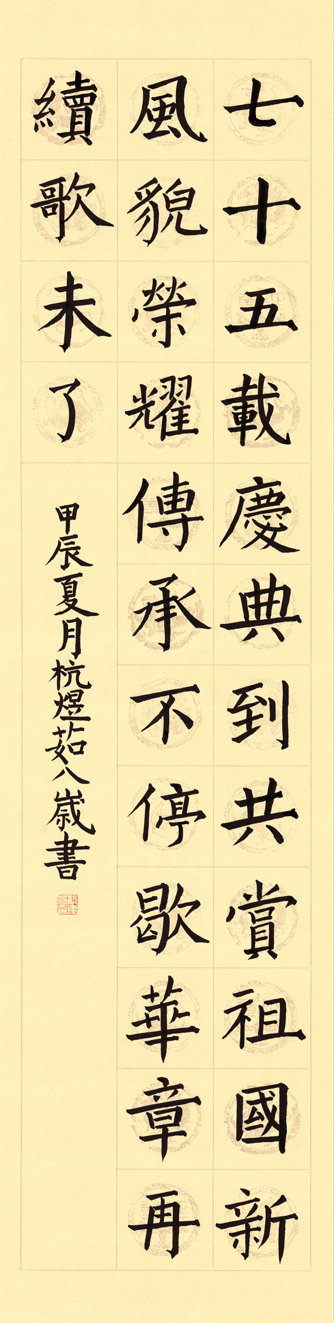 七十五載慶典到共賞祖國新
風貌榮耀傳承不停歇華章再
續歌未了
甲辰夏月杭煜茹八歲書